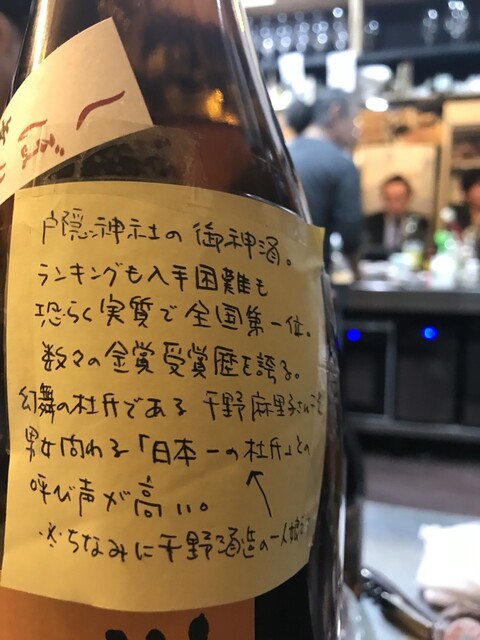 戸隠神社の御神酒。
ランキングも入手困難も
恐らく実質で全国第一位。
数々の金賞受賞歴を誇る。
幻舞の杜氏である千野麻里子さんは
男女問わる「日本一の杜氏」との
呼び声が高い。
※ちなみに千野酒造の一人娘